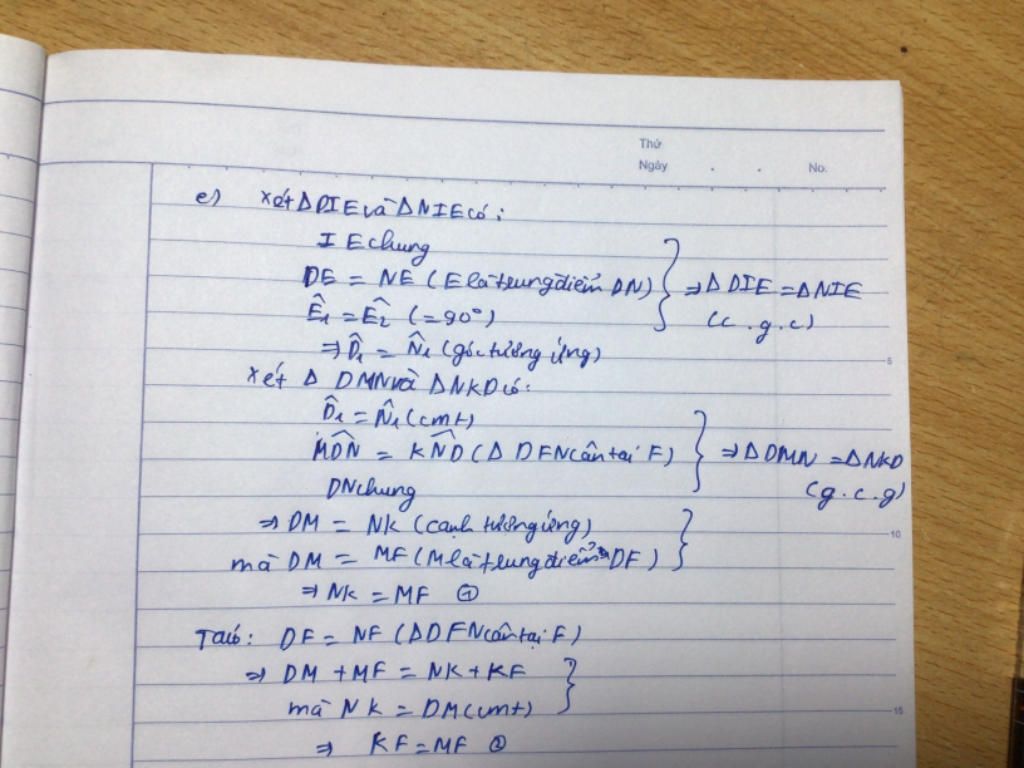 Thứ
Ngày . . No.
e) Xét Δ DIE và Δ NIE có:
IE chung
DE = NE (E là trung điểm DN) } ⇒ Δ DIE = Δ NIE
Ê₁ = Ê₂ (= 90°) (c.g.c)
⇒ D̂₁ = N̂₁ (góc tương ứng)
5
Xét Δ DMN và Δ NKD có:
D̂₁ = N̂₁ (cmt)
MD̂N = KN̂D (Δ DFN cân tại F) } ⇒ Δ DMN = Δ NKD
DN chung (g.c.g)
⇒ DM = NK (cạnh tương ứng)
10
mà DM = MF (M là trung điểm DF) }
⇒ NK = MF ①
Ta có: DF = NF (Δ DFN cân tại F)
⇒ DM + MF = NK + KF
mà NK = DM (cmt) }
15
⇒ KF = MF ②